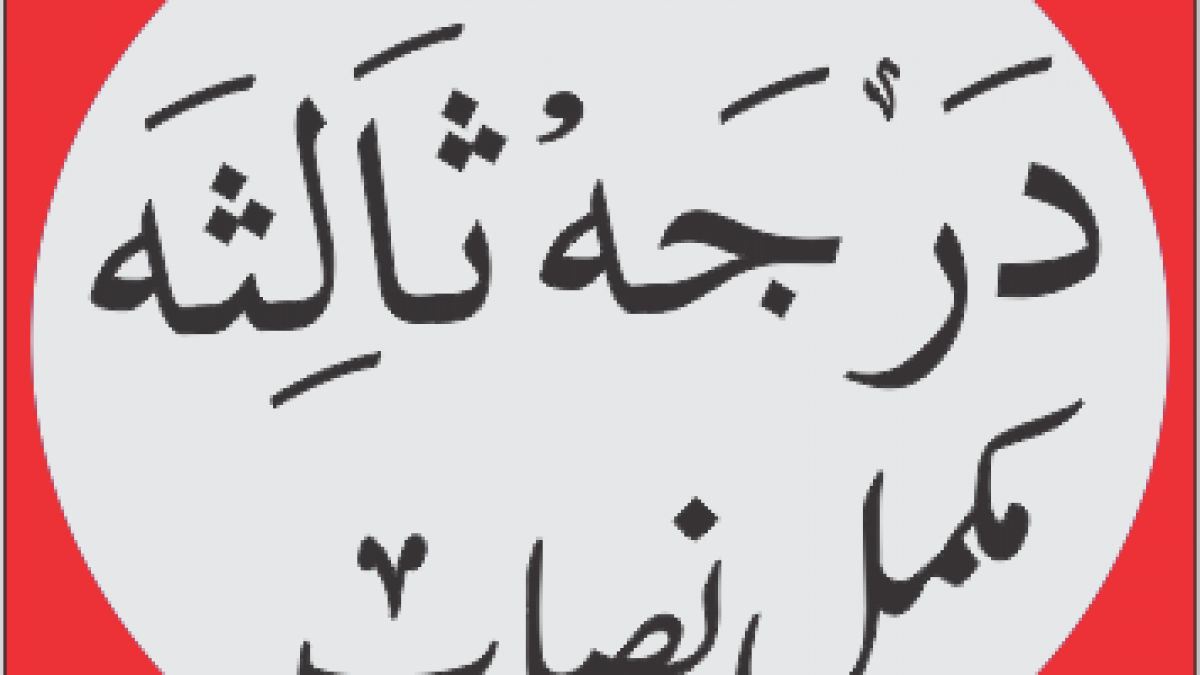 دَرْجَهُ ثَالِثَه
مکمل نصاب